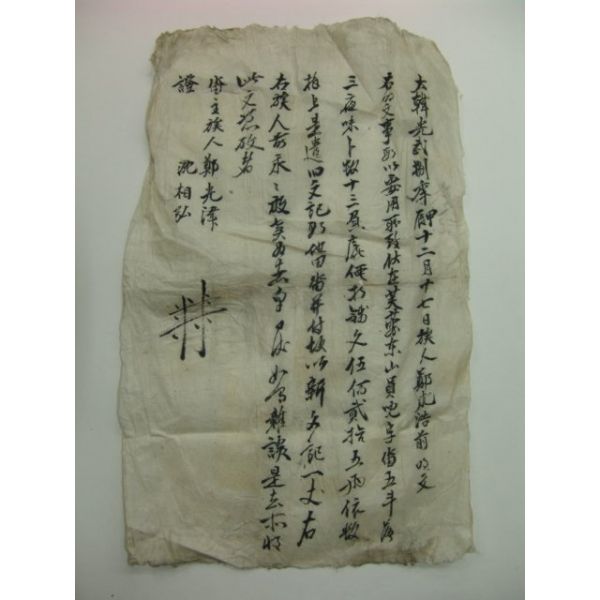 大韓光武捌年甲辰十二月十七日族人鄭光浩前明文
右明文事段以要用所致伏在芙蓉東山員 字畓五斗落
三夜味卜数十三負庫価折錢文伍佰貳拾五兩依數
捧上是遣旧文記 畓并付故以新文記一丈右
右族人前永永放賣為去乎日後如有雜談是去等將
此文憑攷者
畓主族人鄭光澤
證 沈相弘